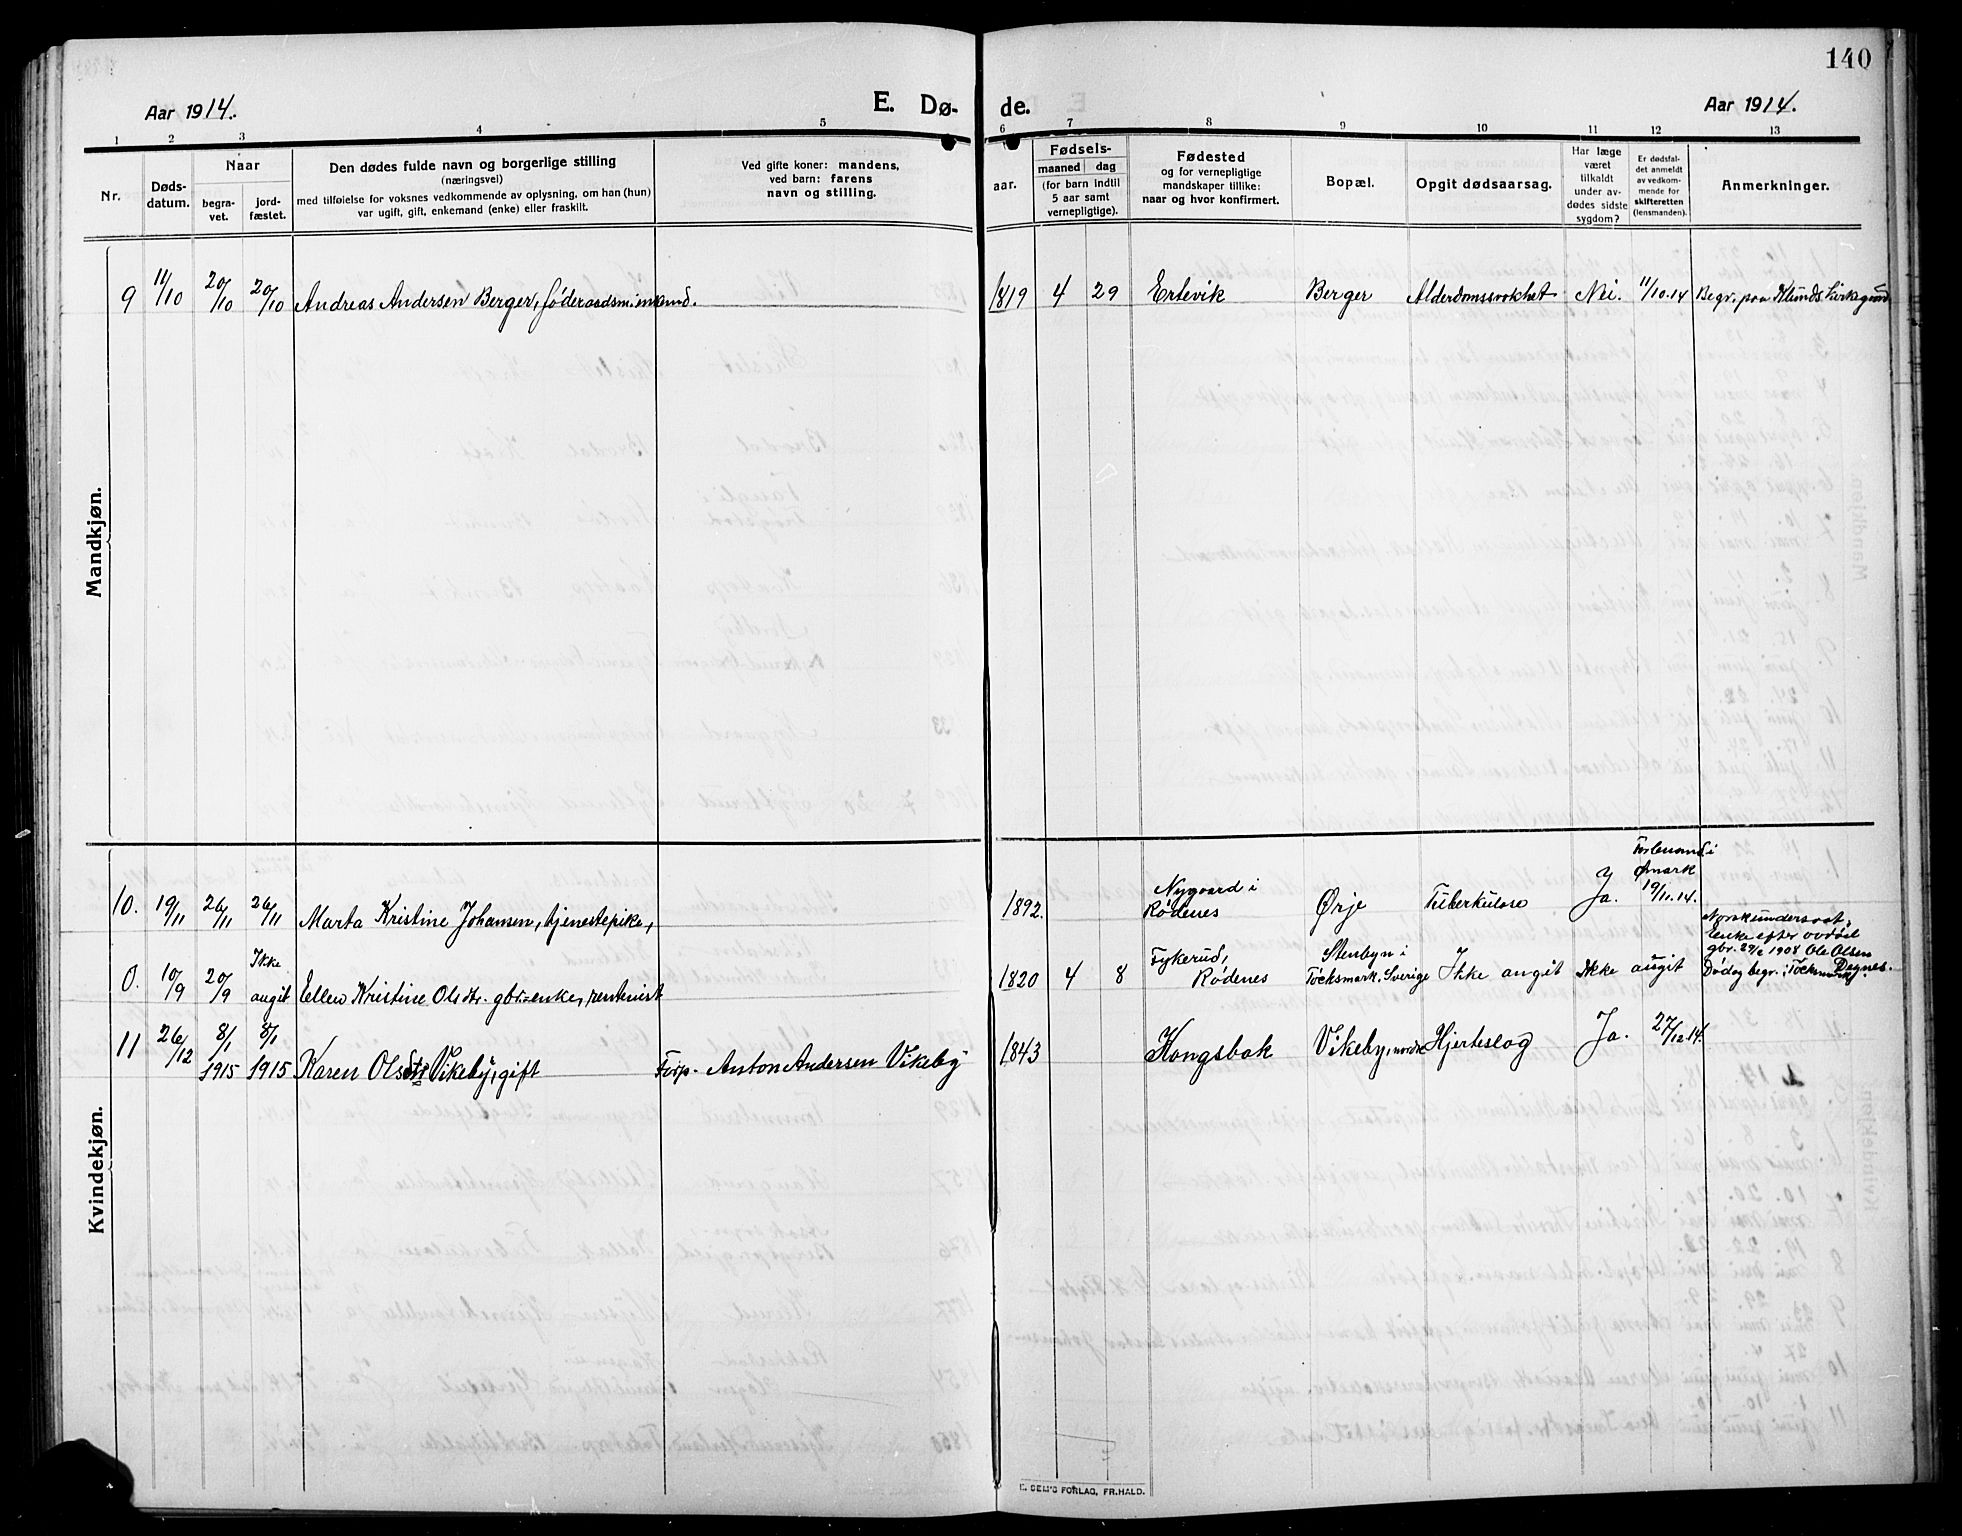 140
Aar 1914.
E. Dø-
de.
Aar 1914.
1 2 3 4 5 6 7 8 9 10 11 12 13
Nr.
Døds-
datum.
Naar
begra-
vet.
jord-
fæstet.
Den dødes fulde navn og borgerlige stilling
(næringsvei)
med tilføielse for voksnes vedkommende av oplysning, om han (hun)
var ugift, gift, enkemand (enke) eller fraskilt.
Ved gifte koner: mandens,
ved barn: farens
navn og stilling.
aar.
Fødsels-
maaned dag
(for barn indtil
5 aar samt
vernepligtige).
Fødested
og for vernepligtige
mandskaper tillike:
naar og hvor konfirmert.
Bopæl.
Opgit dødsaarsag.
Har læge
været
tilkaldt
under av-
dødes sidste
sygdom?
Er dødsfal-
det anmeldt
av vedkom-
mende for
skifteretten
(lensmanden).
Anmerkninger.
Mandkjøn.
9 11/10 20/10 20/10 Andreas Andersen Berger, føderaadsm. enkemd. 1819 4 29 Ertevik Berger Alderdomssvakhet Nei. 11/10.14 Begr. paa Klunds kirkegaard
Kvindekjøn.
10. 19/11 26/11 26/11 Marta Kristine Johansen, tjenestepike, 1892. Nygaard i
Rødenes Ørje Tuberkulose Ja. Forlensmd. i
Ømark
19/11.14.
0. 10/9 20/9 Ikke
angit Ellen Kristine Olsdtr. gbr.enke, rentenist 1820 4 8 Fykerud,
Rødenes Stenbyn i
Töcksmark. Sverige Ikke angit Ikke angit Norsk undersaat,
Enke efter avdød
gbr. 29/6 1908 Ole Olsen
Degnes.
Død og begr. i Töcksmark
11 26/12 8/1
1915 8/1
1915 Karen Olsdtr Vikeby, gift Forp. Anton Andersen Vikeby 1843 Kongsbak Vikeby, nordre Hjerteslag Ja. 27/12.14.
E. SEM'S FORLAG, FR.HALD.